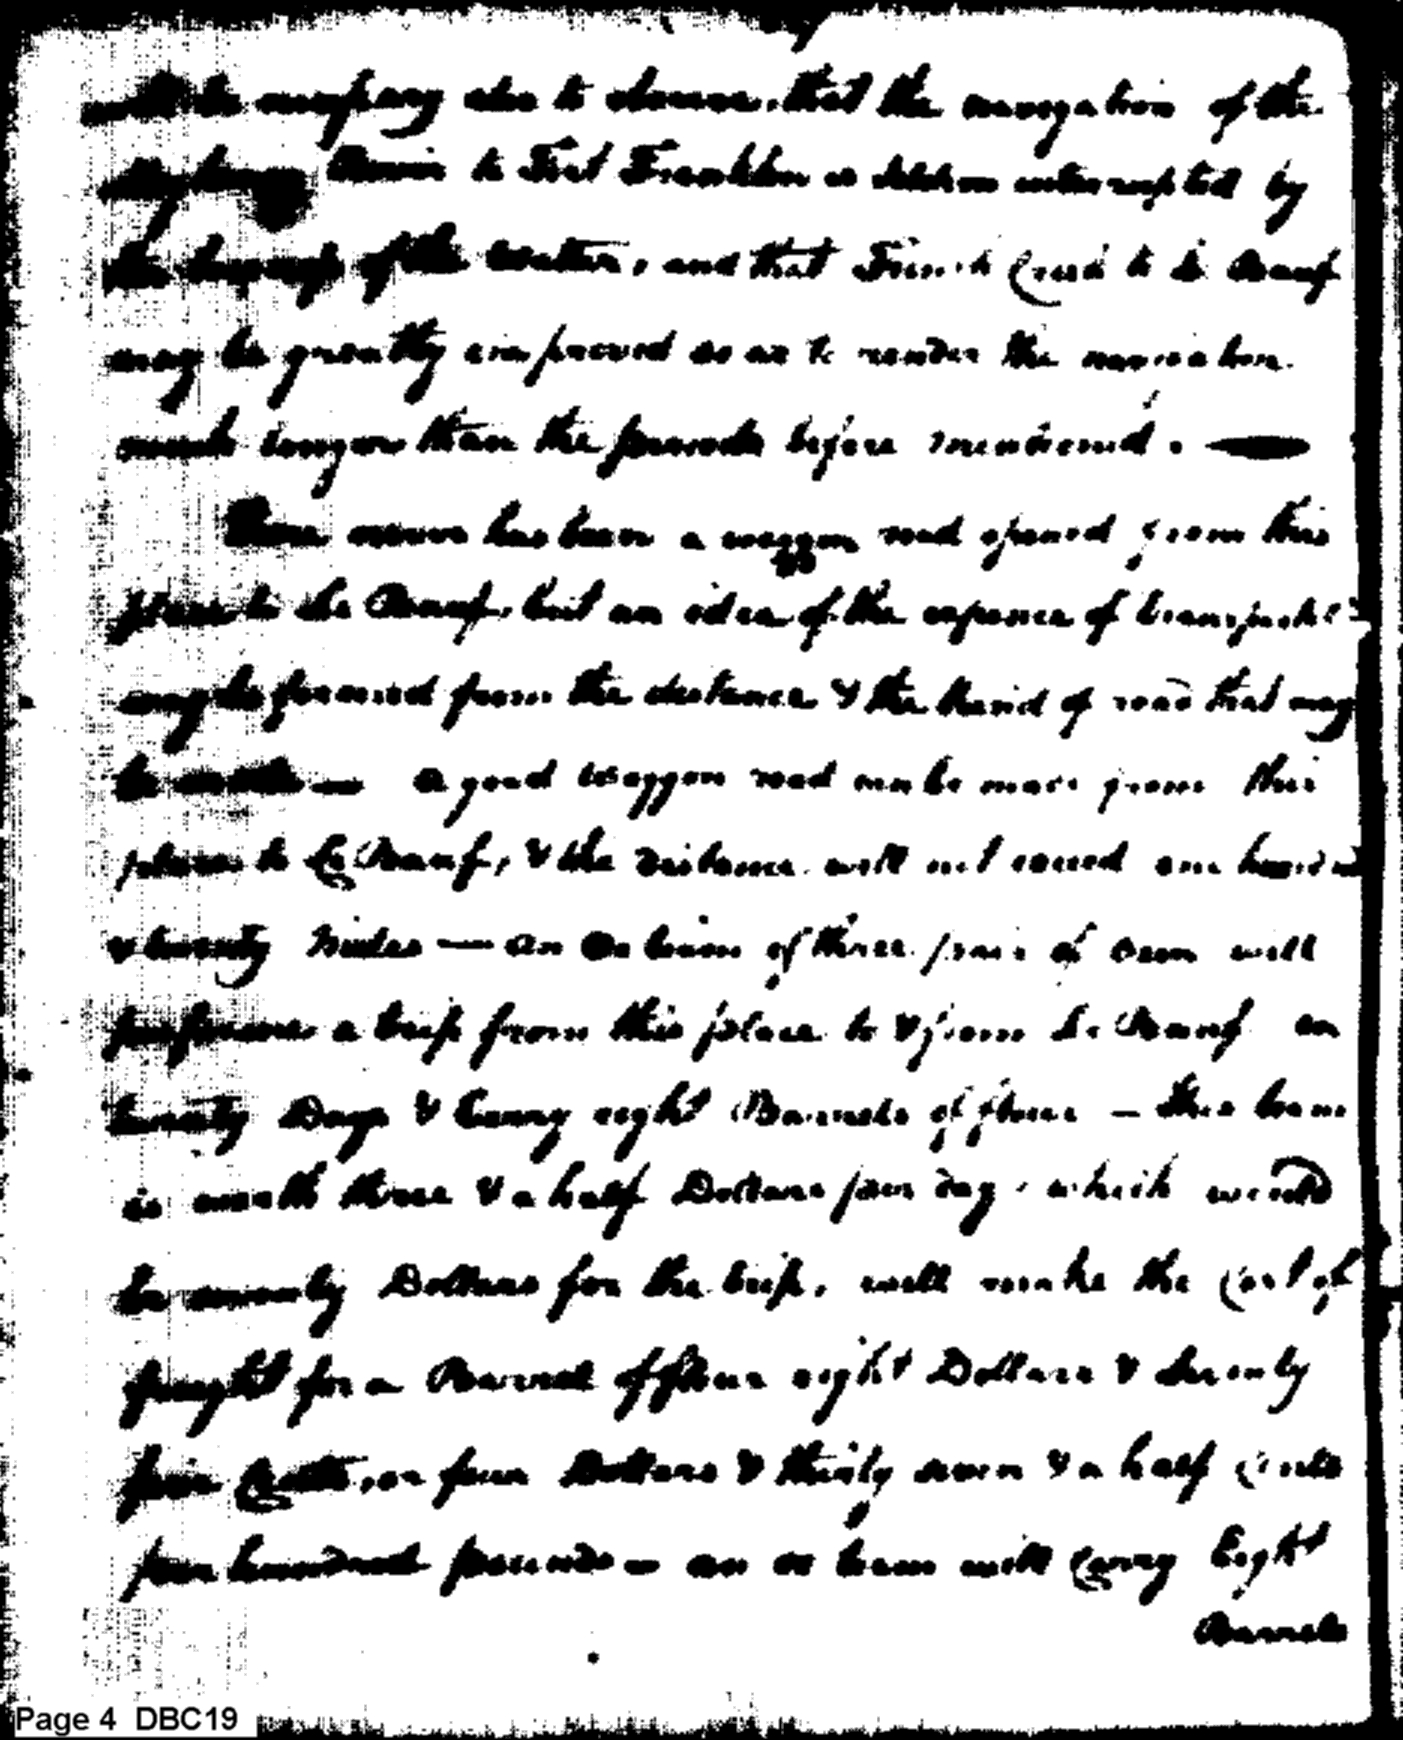 will be necessary also to observe, that the navigation of the
Allegheny River to Fort Franklin is seldom interrupted by
the lowness of the water, and that French Creek to Le Beauf
may be greatly improved so as to render the navigation
much longer than the periods before mentioned. —
There never has been a waggon road opened from this
place to Le Beauf, but an idea of the expence of transport
may be formed from the distance & the kind of road that may
be made — a good waggon road can be made from this
place to Le Beauf, & the distance will not exceed one hundred
& twenty Miles — an Ox team of three pair of Oxen will
perform a trip from this place to & from Le Beauf in
twenty Days & Carry eight Barrels of flour — This team
is worth three & a half Dollars per day, which would
be seventy Dollars for the trip, will make the Cost of
freight for a Barrel of flour eight Dollars & seventy
five Cents, or four Dollars & thirty seven & a half Cents
per hundred pounds — an ox team will Carry Eight
Barrels
Page 4 DBC19